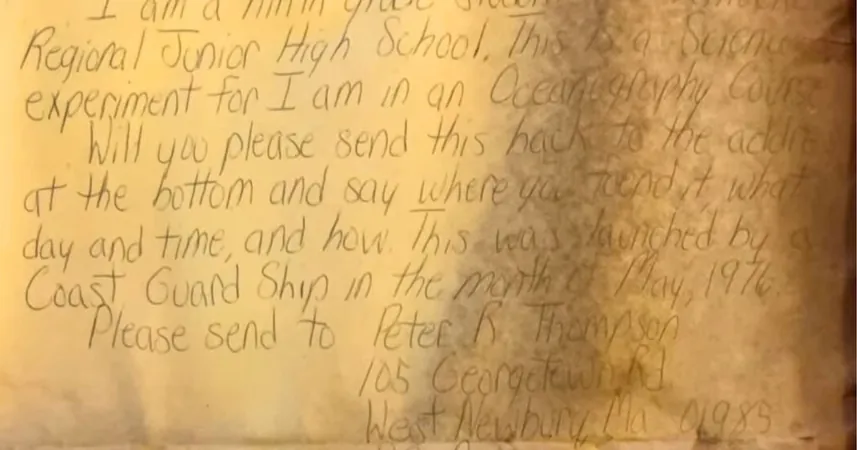 I am a ninth grade student
Regional Junior High School. This is a Science
experiment for I am in an Oceanography Course
Will you please send this back to the addre
at the bottom and say where you found it, what
day and time, and how. This was launched by a
Coast Guard Ship in the month of May, 1976.
Please send to Peter R Thompson
105 Georgetown Rd
West Newbury, Ma 01985